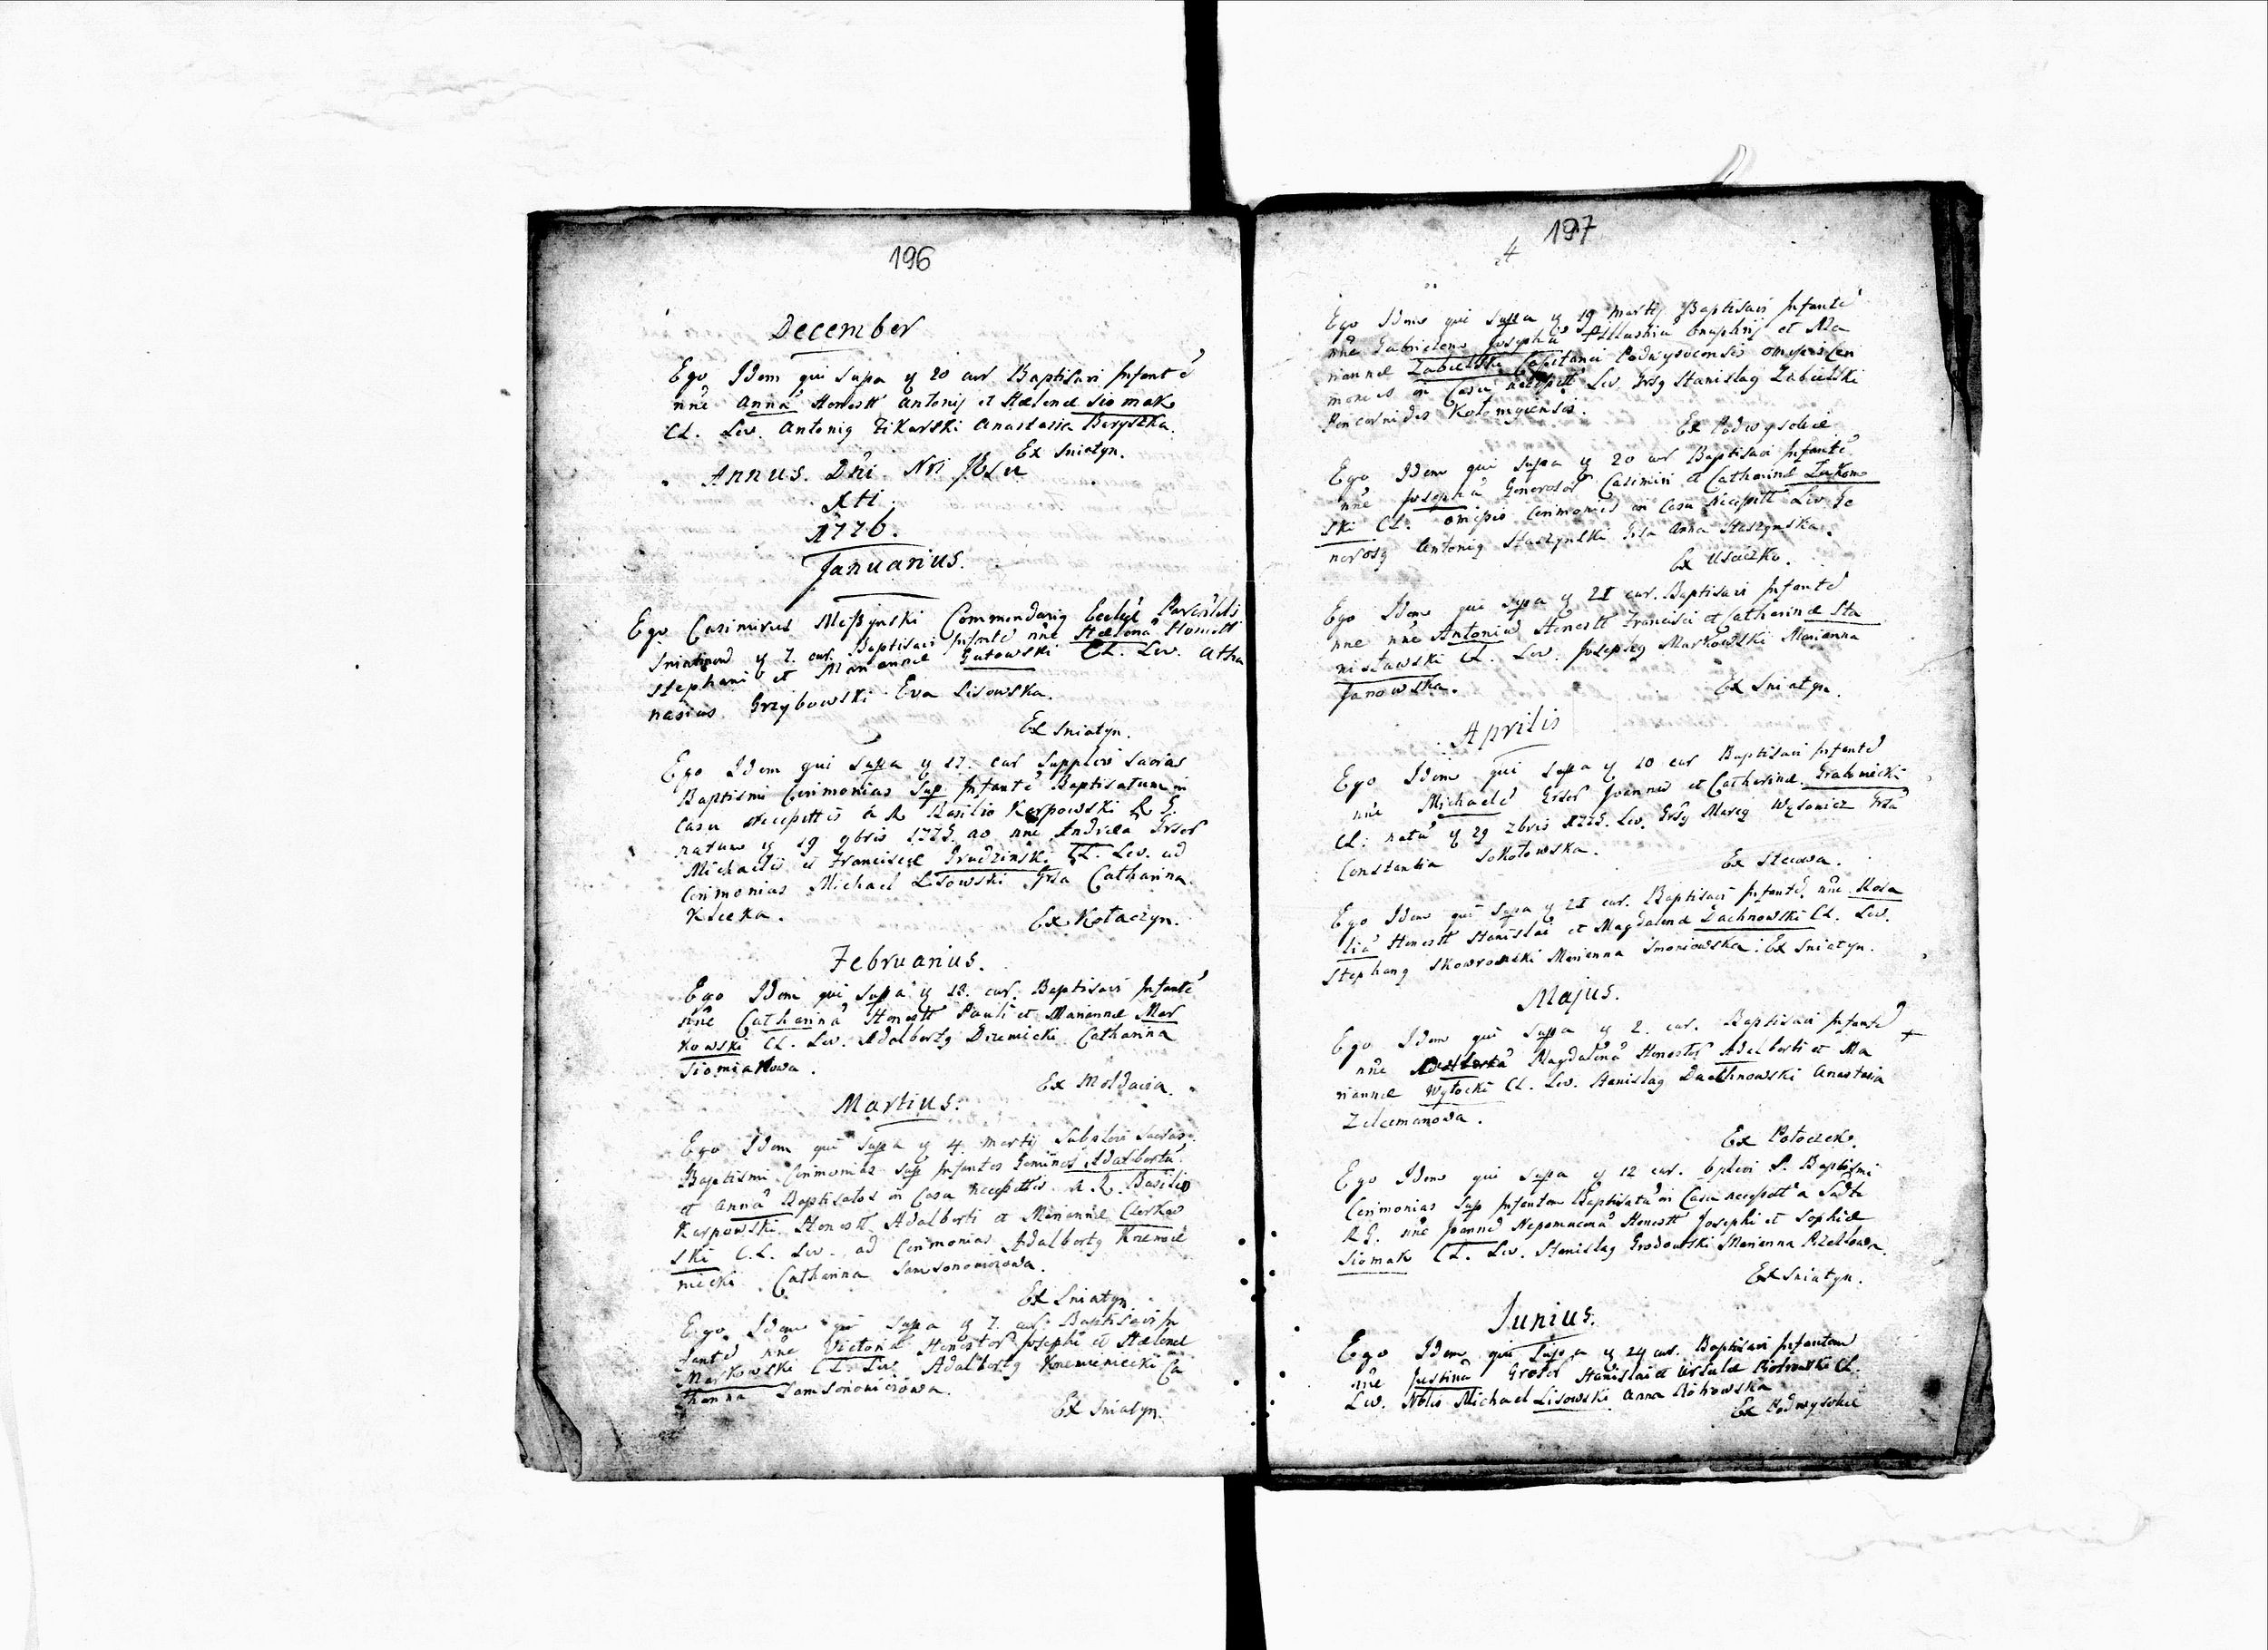 196
December
Ego Idem qui Supra ỹ 20 cur Baptisavi Infantē
nñe Annā Honestt Antonij et Hælenæ Siomak
CL. Lev. Antonig Tikarski Anastasia Beryszka.
Ex Sniatyn.
Annus. Dñi Nri JEsu
Xti.
1776.
Januarius.
Ego Casimirus Commendarig Ecclæ
ỹ 7. cur. Baptisavi Infantē nñe Hælenā Honestt
Stephani et Mariannæ Gutowski CL. Lev. Atha
nasius Grzybowski Eva Lisowska.
Ex Sniatyn.
Ego Idem qui Supra ỹ 17. cur Supplevi Sacras
Baptismi Cerimonias Sup Infantē Baptisatum in
Casu necessttis à R Basilio Karpowski R. G.
natum ỹ 19 9bris 1775. ao nñe Andrea Grsor
Michaelis et Franciscæ Grudzinski CL. Lev. ad
Cerimonias Michael Lisowski Grsa Catharina
Ex Kołaczyn.
Februarius.
Ego Idem qui Supra ỹ 18. cur. Baptisavi Infantē
nñe Catharinā Honestt Pauli et Mariannæ Mar
kowski CL. Lev. Adalbertg Drzemicki Catharina
Siomiakowa.
Ex Moldavia.
Martius.
Ego Idem qui Supra ỹ 4. Martij Suplevi Sacras
Baptismi Cerimonias Sup Infantes Geminos Adalbertū
et Annā Baptisatos in Casu necessttis à R. Basilio
Karpowski Honestt Adalberti et Mariannæ Czerkaw
ski C.L. Lev. ad Cerimonias Adalbertg Krzemie
niecki Catharina Samsonowiczowa.
Ex Sniatyn.
Ego Idem qui Supra ỹ 7. cur. Baptisavi In
fantē nñe Victoriā Honestor Josephi et Hælenæ
Markowski CL. Lev. Adalbertg Krzemieniecki Ca
tharina Samsonowiczowa.
Ex Sniatyn.
197
4
Ego Idem qui Supra ỹ 19 Martij Baptisavi Infantē
nñe Gabrielem Josephū Onuphrij et Ma
riannæ Zabielski Capitanei Podwysocensis omissis Ceri
moniis in Casu necessitt Lev. Grsg Stanislag Zabielski
Ex Podwysokie
Ego Idem qui Supra ỹ 20 cur Baptisavi Infantē
nñe Josephū Generosor Casimiri et Catharinæ Lukom
ski CL. omissis Cerimoniis in Casu necessitt Lev. Ge
nerosg Antonig Staszynski Grsa Anna Staszynska.
Ex Usciczko.
Ego Idem qui Supra ỹ 21 cur. Baptisavi Infantē
nne nñe Antoniū Honestt Francisci et Catharinæ Sta
nisławski CL. Lev. Josephg Markowski Marianna
Janowska.
Ex Sniatyn.
Aprilis
Ego Idem qui Supra ỹ 10 cur Baptisavi Infantē
nñe Michaelē Grsor Joannis et Catharinæ Grabinicki
CL. natū ỹ 29 7bris 1775. Lev. Grsg Wysowicz Grsa
Constantia Sokołowska.
Ex Stecowa.
Ego Idem qui Supra ỹ 21 cur. Baptisavi Infantē nñe Rosa
liā Honestt Stanislai et Magdalenæ Lachnowski CL. Lev.
Stephang Skowronski Marianna Smoniowska. Ex Sniatyn.
Majus.
Ego Idem qui Supra ỹ 2. cur. Baptisavi Infantē +
nñe Magdalenā Honestor Adalberti et Ma
riannæ Wysocki CL. Lev. Stanislag Dachnowski Anastasia
Zelemanowa.
Ex Potoczek.
Ego Idem qui Supra ỹ 12 cur. Splevi S. Baptismi
Cerimonias Sup Infantem Baptisatū in Casu necessitt a
R.G. nñe Joannē Nepomucenū Honestt Josephi et Sophiæ
Siomak CL. Lev. Stanislag Grodowski Marianna
Ex Sniatyn.
Junius.
Ego Idem qui Supra ỹ 24 cur. Baptisavi Infantem
nñe Justinā Grosor Stanislai et Ursulæ Piotrowski CL.
Lev. Nblis Michael Lisowski Anna
Ex Podwysokie